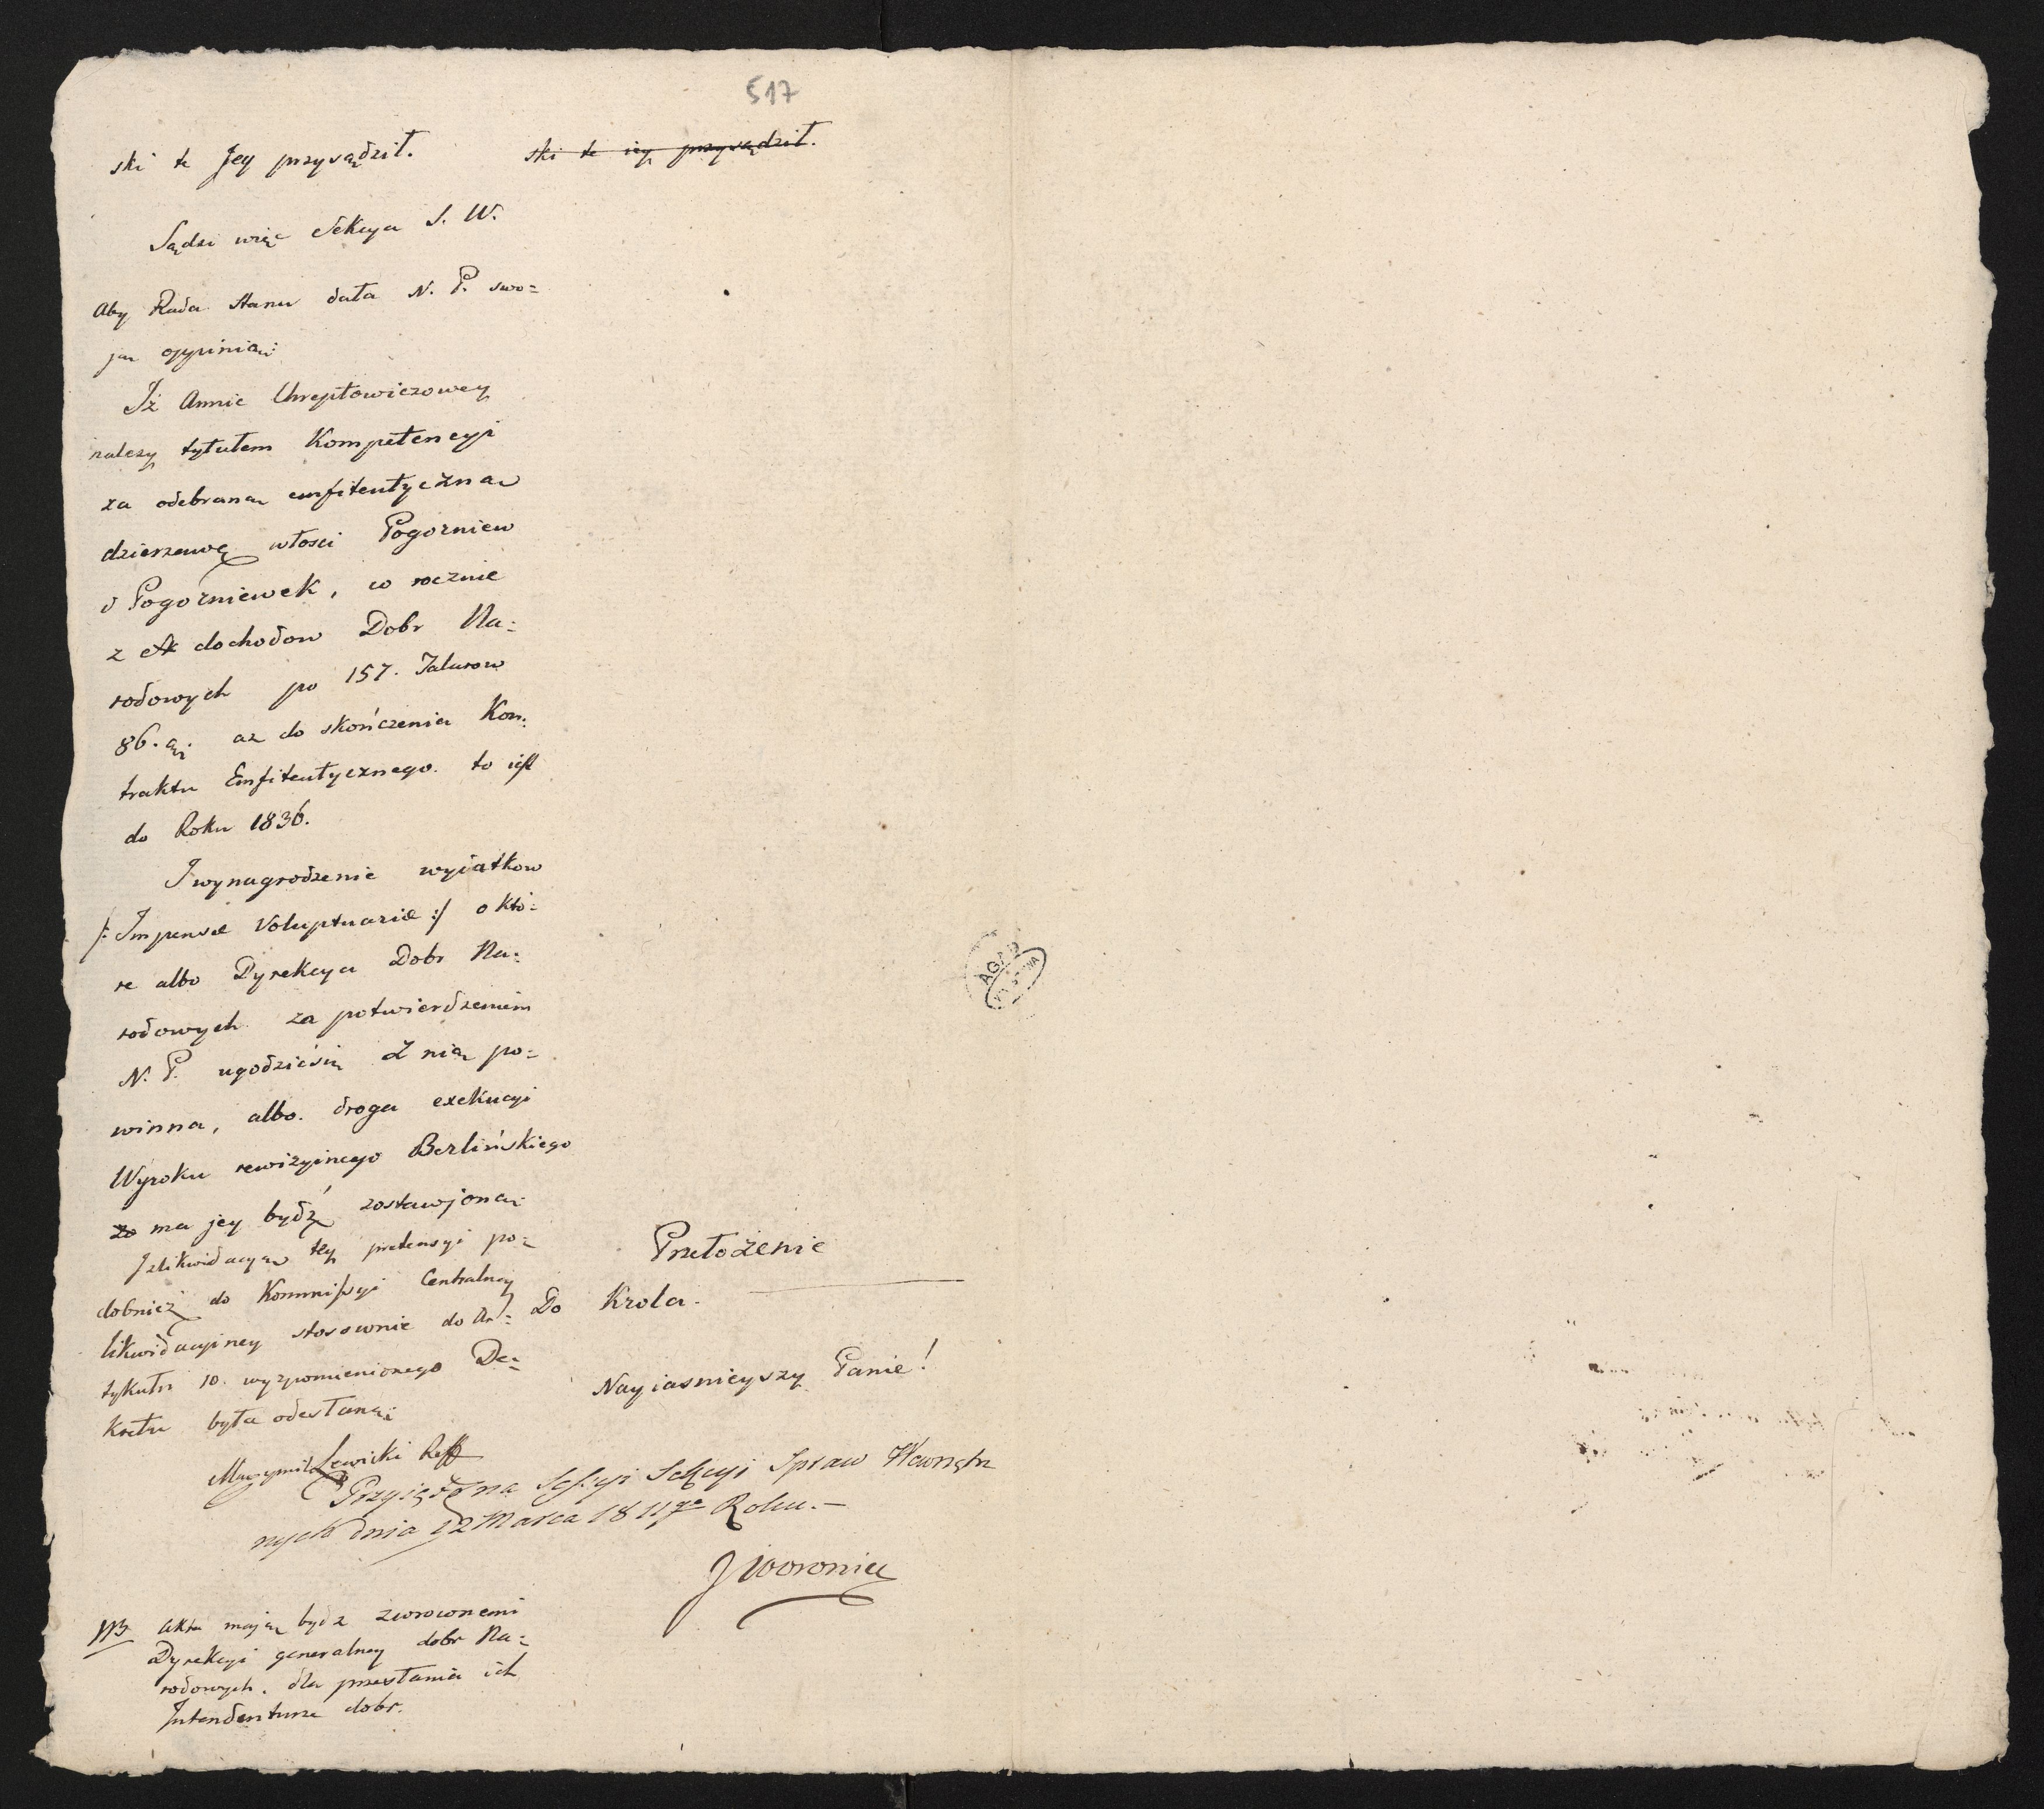 517
ski te Jey przysądził.
ski te iey przysądził.
Sądzi więc Sekcya S. W.
Aby Rada Stanu dała N. P. swo=
ją oppinią:
Iż Annie Chreptowiczowey
należy tytułem Kompetencyi
za odebraną emfiteutyczną
dzierzawę włości Pogorniew
i Pogorniewek, co rocznie
z dochodow Dobr Na=
rodowych po 157. Talarow
86. az do skończenia Kon=
traktu Emfiteutycznego to iest
do Roku 1836.
I wynagrodzenie wyiątkow
/: Impensae Voluptuariae :/ o któ=
re albo Dyrekcya Dobr Na=
rodowych za potwierdzeniem
N. P. ugodzić się z nią po=
winna, albo droga exekucyi
Wyroku rewizyinego Berlińskiego
ma jey bydź zostawioną.
I zlikwidacyą tey pretensyi po=
dobnież do Kommissyi Centralney
likwidacyiney stosownie do Ar=
tykułu 10. wyzpomienionego De=
kretu była odesłaną:
Maxymil Lewicki Reff
Przełożenie
Do Krola.
Nayiasnieyszy Panie!
Przyięto na Sessyi Sekcyi Spraw Wewnętrz
nych dnia 12 Marca 1811go Roku.—
J Woronicz
NB Akta mają bydz zwrocnemi
Dyrekcyi generalney dobr Na=
rodowych. dla przesłania ich
Intendenturze dobr.
AGAD